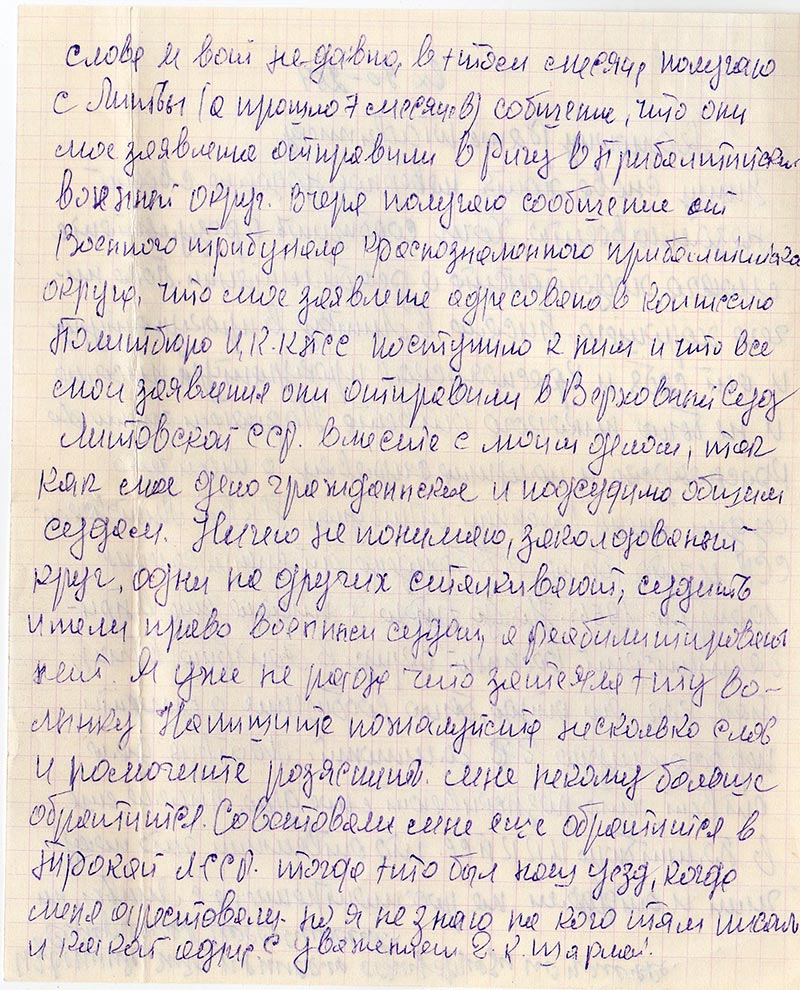 слова и вот не-давно, в этом месяце получаю
с Литвы (а прошло 7 месяцев) собщение, что они
мое заявление отправили в Ригу в Прибалтийский
военный округ. Вчера получаю сообщение от
Военного трибунала Краснознаменного прибалтийского
округа, что мое заявление адресовано в комиссию
Политбюро Ц.К.КПСС поступило к ним и что все
мои заявления они отправили в Верховный Суд
Литовской ССР. вместе с моим делом, так
как мое дело гражданское и подсудимо общим
судам. Ничего не понимаю, заколдованый
круг, одни на других сталкивают, судить
имели право военным судом, а реабилитировать
нет. Я уже не рада что затеяла эту во-
лынку Напишите пожалуйста несколько слов
и помогите розяснить. мне некому больше
обратится. Советовали мне еще обратится в
Шрокай ЛССР. тогда это был наш уезд, когда
меня арестовали. но я не знаю на кого там писать
и какой адрес. С уважением Е. К.